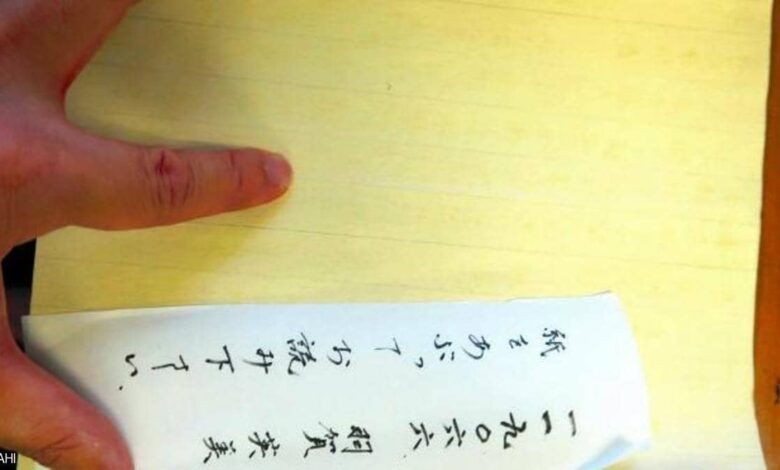 紙をあぶってお読み下さい、
一一九〇六六 羽賀 英美
AHI